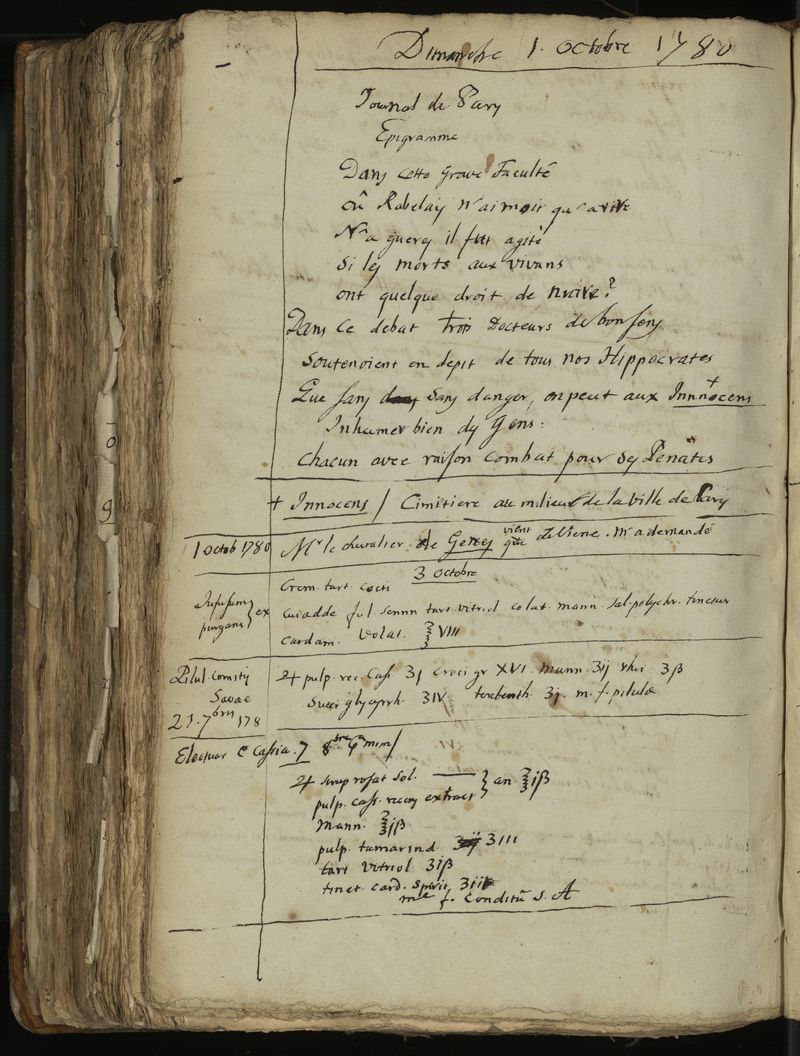 Dimanche 1. Octobre 1780
Journal de Pary
Epigramme
Dans cette grave Faculté
où Rabelais n'aimoit qu'a rire
N'a guerey il fut agité
Si ley morts aux vivans
ont quelque droit de nuire?
Dans ce debat trois Docteurs de bon sens
Soutenoient en depit de tous nos Hippocrates
Que sans Sans danger, on peut aux Innnocens +
Inhumer bien dey Gens:
Chacun avec raison combat pour sey Penates
+ Innocens / Cimitiere au milieu de la ville de Pary
1 octob 1780 Mr le chevalier de Genes vient de Viene. m'a demandé
3 octobre
Crem. tart. cocti
Infusum purgans } ex
cui adde fol senn tart. vitriol colat. mann. Sal. polychr. tinctur
Cardam. volat. ℥ VIII
Pilul Comitis ♃ pulp. rec. Cass ʒj Croci gr XVI. Mann. ʒij rhei ʒβ
Succi glycyrrh. ʒIV terebenth. ʒj. m. f. pilulæ
21. 7bris 178
Electuar e Cassia. 7 8bre
♃ Sirup rosat Sol.
pulp. cass. recens extract } an. ℥iβ
Mann. ℥jβ
pulp. tamarind ʒIII
tart vitriol ʒiβ
tinct. card. Spirit. ʒii
f. Conditū S. A